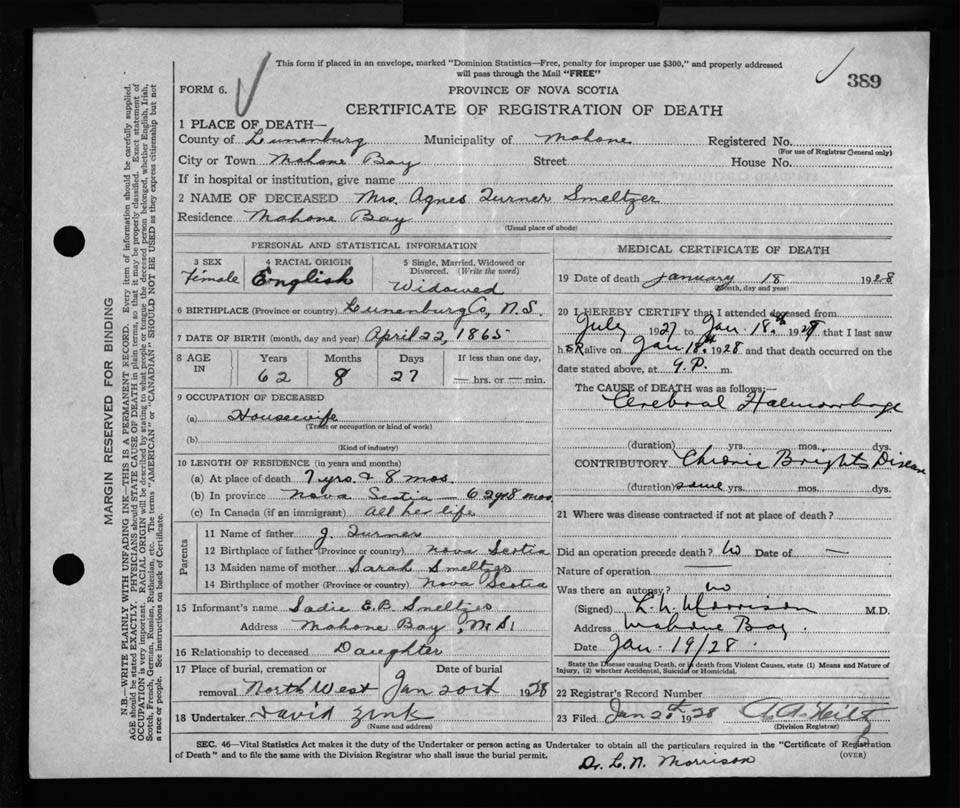 This form if placed in an envelope, marked "Dominion Statistics—Free, penalty for improper use $300," and properly addressed
will pass through the Mail "FREE"
389
FORM 6.
PROVINCE OF NOVA SCOTIA
CERTIFICATE OF REGISTRATION OF DEATH
1 PLACE OF DEATH—
County of Lunenburg Municipality of Mahone Registered No.
(For use of Registrar General only)
City or Town Mahone Bay Street House No.
If in hospital or institution, give name
2 NAME OF DECEASED Mrs. Agnes Turner Smeltzer
Residence Mahone Bay
(Usual place of abode)
PERSONAL AND STATISTICAL INFORMATION
3 SEX 4 RACIAL ORIGIN 5 Single, Married, Widowed or
Divorced. (Write the word)
Female English Widowed
6 BIRTHPLACE (Province or country) Lunenburg Co, N.S.
7 DATE OF BIRTH (month, day and year) April 22, 1865
8 AGE IN Years Months Days If less than one day,
62 8 27 — hrs. or — min.
9 OCCUPATION OF DECEASED
(a) Housewife
(Trade or occupation or kind of work)
(b)
(Kind of industry)
10 LENGTH OF RESIDENCE (in years and months)
(a) At place of death 7 yrs. & 8 mos.
(b) In province Nova Scotia — 62 yr 8 mos
(c) In Canada (if an immigrant) All her life
Parents
11 Name of father J. Turner
12 Birthplace of father (Province or country) Nova Scotia
13 Maiden name of mother Sarah Smeltzer
14 Birthplace of mother (Province or country) Nova Scotia
15 Informant's name Sadie E.B. Smeltzer
Address Mahone Bay, N.S.
16 Relationship to deceased Daughter
17 Place of burial, cremation or Date of burial
removal North West Jan 20th 1928
18 Undertaker David Zink
(Name and address)
MEDICAL CERTIFICATE OF DEATH
19 Date of death January 18 1928
(Month, day and year)
20 I HEREBY CERTIFY that I attended deceased from
July 1927 to Jan. 18th 1928 that I last saw
her alive on Jan 18th 1928 and that death occurred on the
date stated above, at 9. P. m.
The CAUSE of DEATH was as follows:—
Cerebral Haemorrhage
(duration) yrs. mos. dys.
CONTRIBUTORY Chronic Brights Disease
(duration) same yrs. mos. dys.
21 Where was disease contracted if not at place of death?
Did an operation precede death? No Date of —
Nature of operation —
Was there an autopsy? no
(Signed) L. N. Morrison M.D.
Address Mahone Bay.
Date Jan. 19/28.
State the Disease causing Death, or in death from Violent Causes, state (1) Means and Nature of
Injury, (2) whether Accidental, Suicidal or Homicidal.
22 Registrar's Record Number
23 Filed Jan 20th 1928
(Division Registrar)
SEC. 46—Vital Statistics Act makes it the duty of the Undertaker or person acting as Undertaker to obtain all the particulars required in the "Certificate of Registration
of Death" and to file the same with the Division Registrar who shall issue the burial permit.
(OVER)
Dr. L. N. Morrison
MARGIN RESERVED FOR BINDING
N.B.—WRITE PLAINLY WITH UNFADING INK—THIS IS A PERMANENT RECORD. Every item of information should be carefully supplied.
AGE should be stated EXACTLY. PHYSICIANS should STATE CAUSE OF DEATH in plain terms, so that it may be properly classified. Exact statement of
OCCUPATION is very important. RACIAL ORIGIN will be described by stating to what people or race the deceased person belonged, whether English, Irish,
Scotch, French, German, Russian, Ruthenian, etc. The terms "AMERICAN" or "CANADIAN" SHOULD NOT BE USED as they express citizenship but not
a race or people. See instructions on back of Certificate.